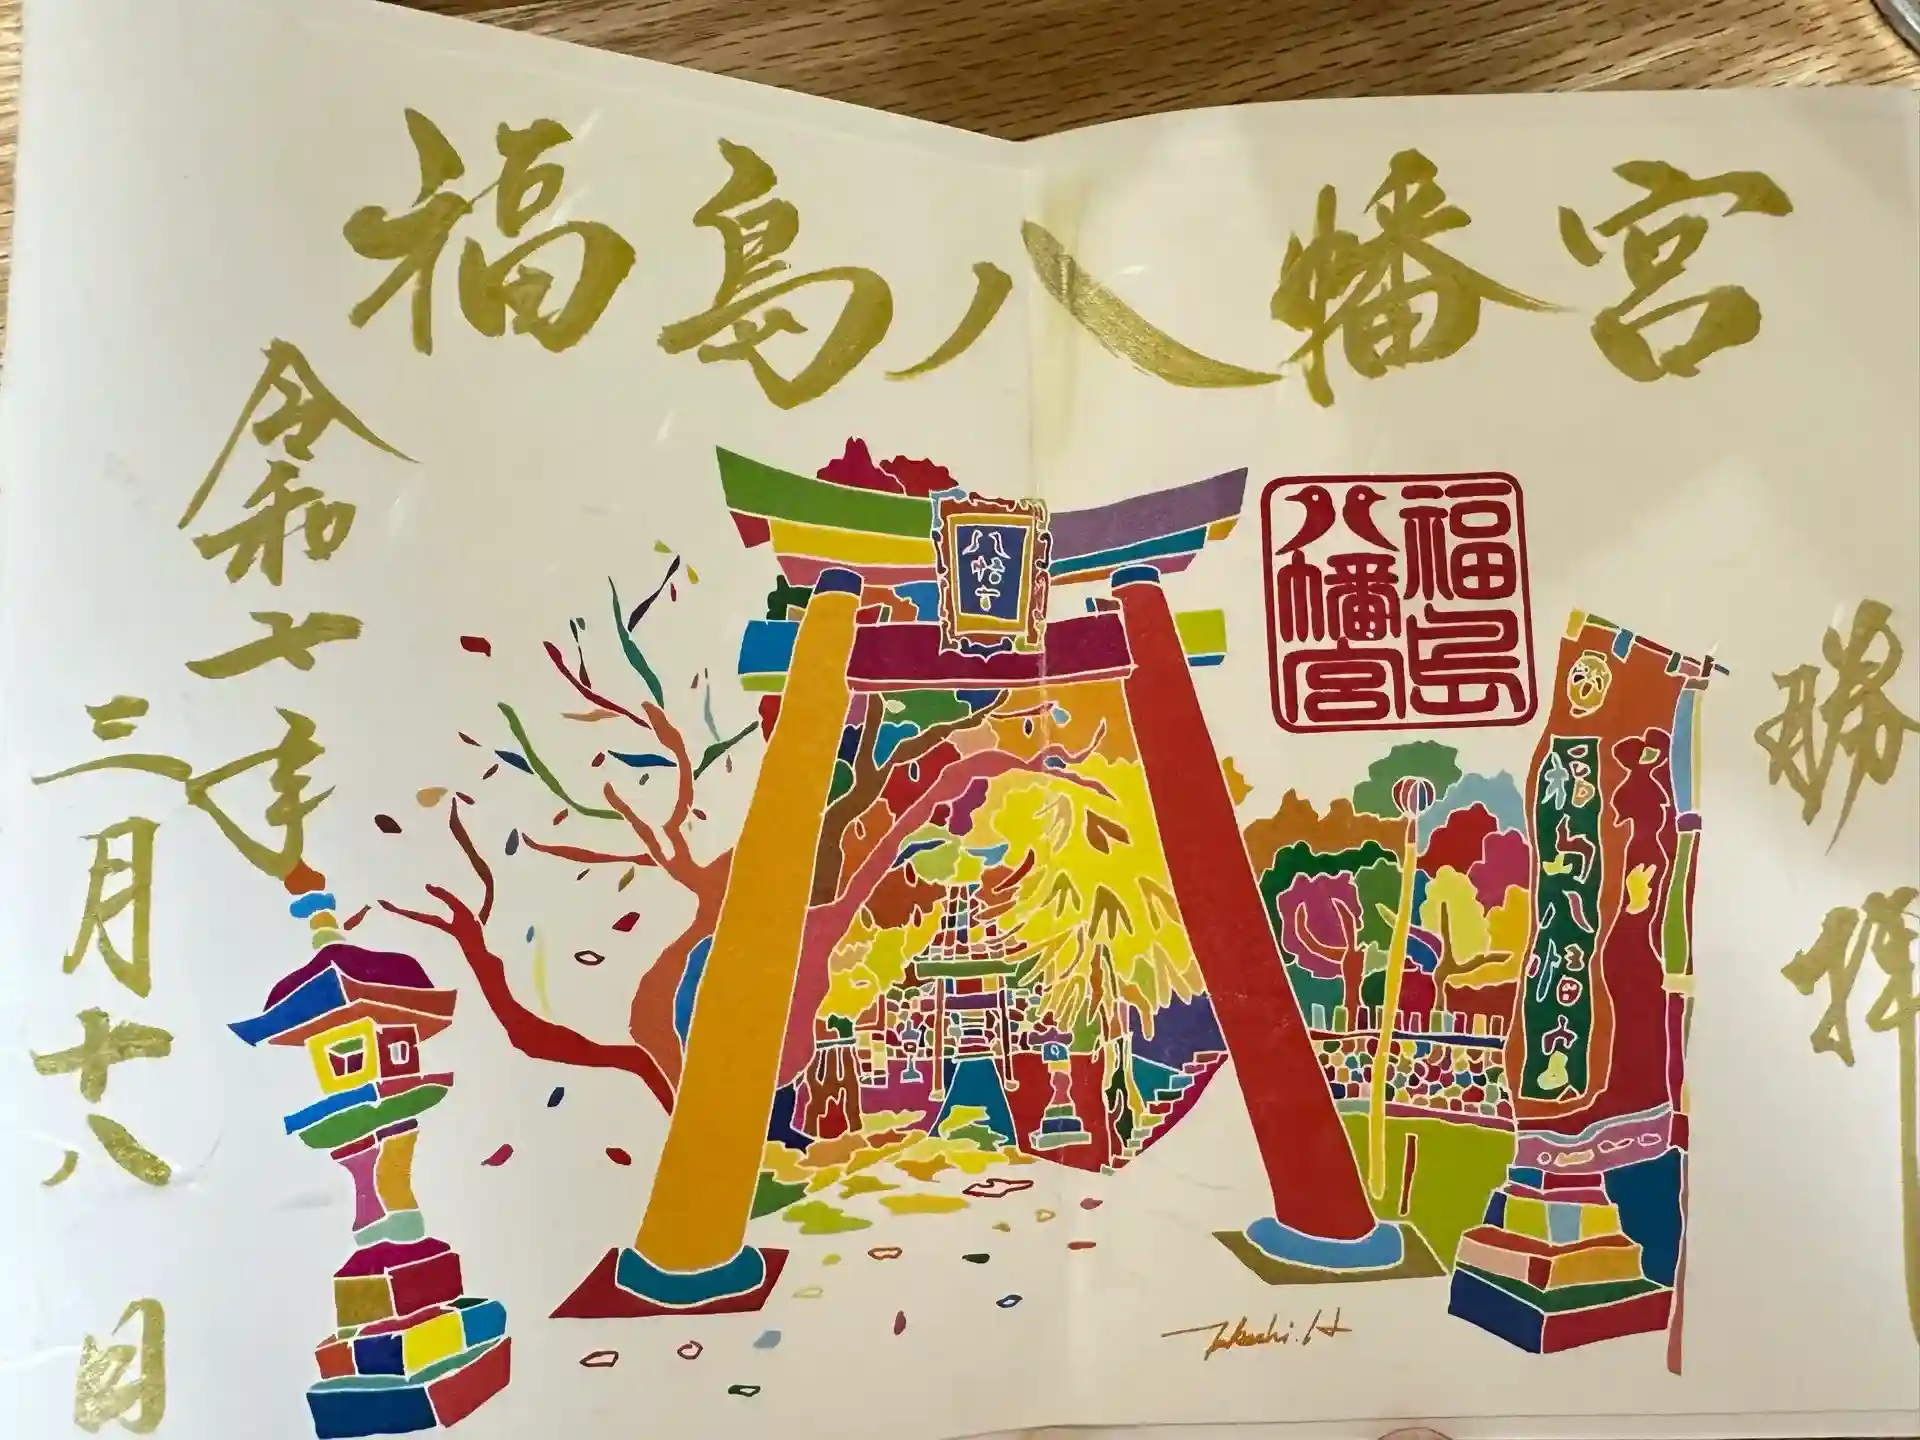 福島八幡宮
勝拝
福島
八幡宮
八幡宮
福島八幡宮
令和七年
三月十八日
Takeshi.H